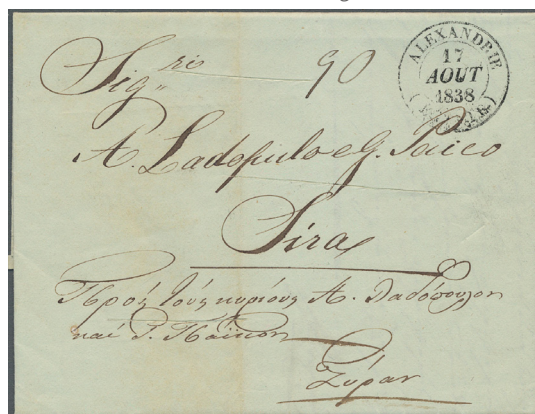 ALEXANDRIE
17
AOUT
1838
Sig.ri 90
A. Ladopulo e G. Paico
Sira
Πρὸς τοὺς κυρίους Α. Λαδόπουλον
καὶ Γ. Πάϊκον
Σύραν